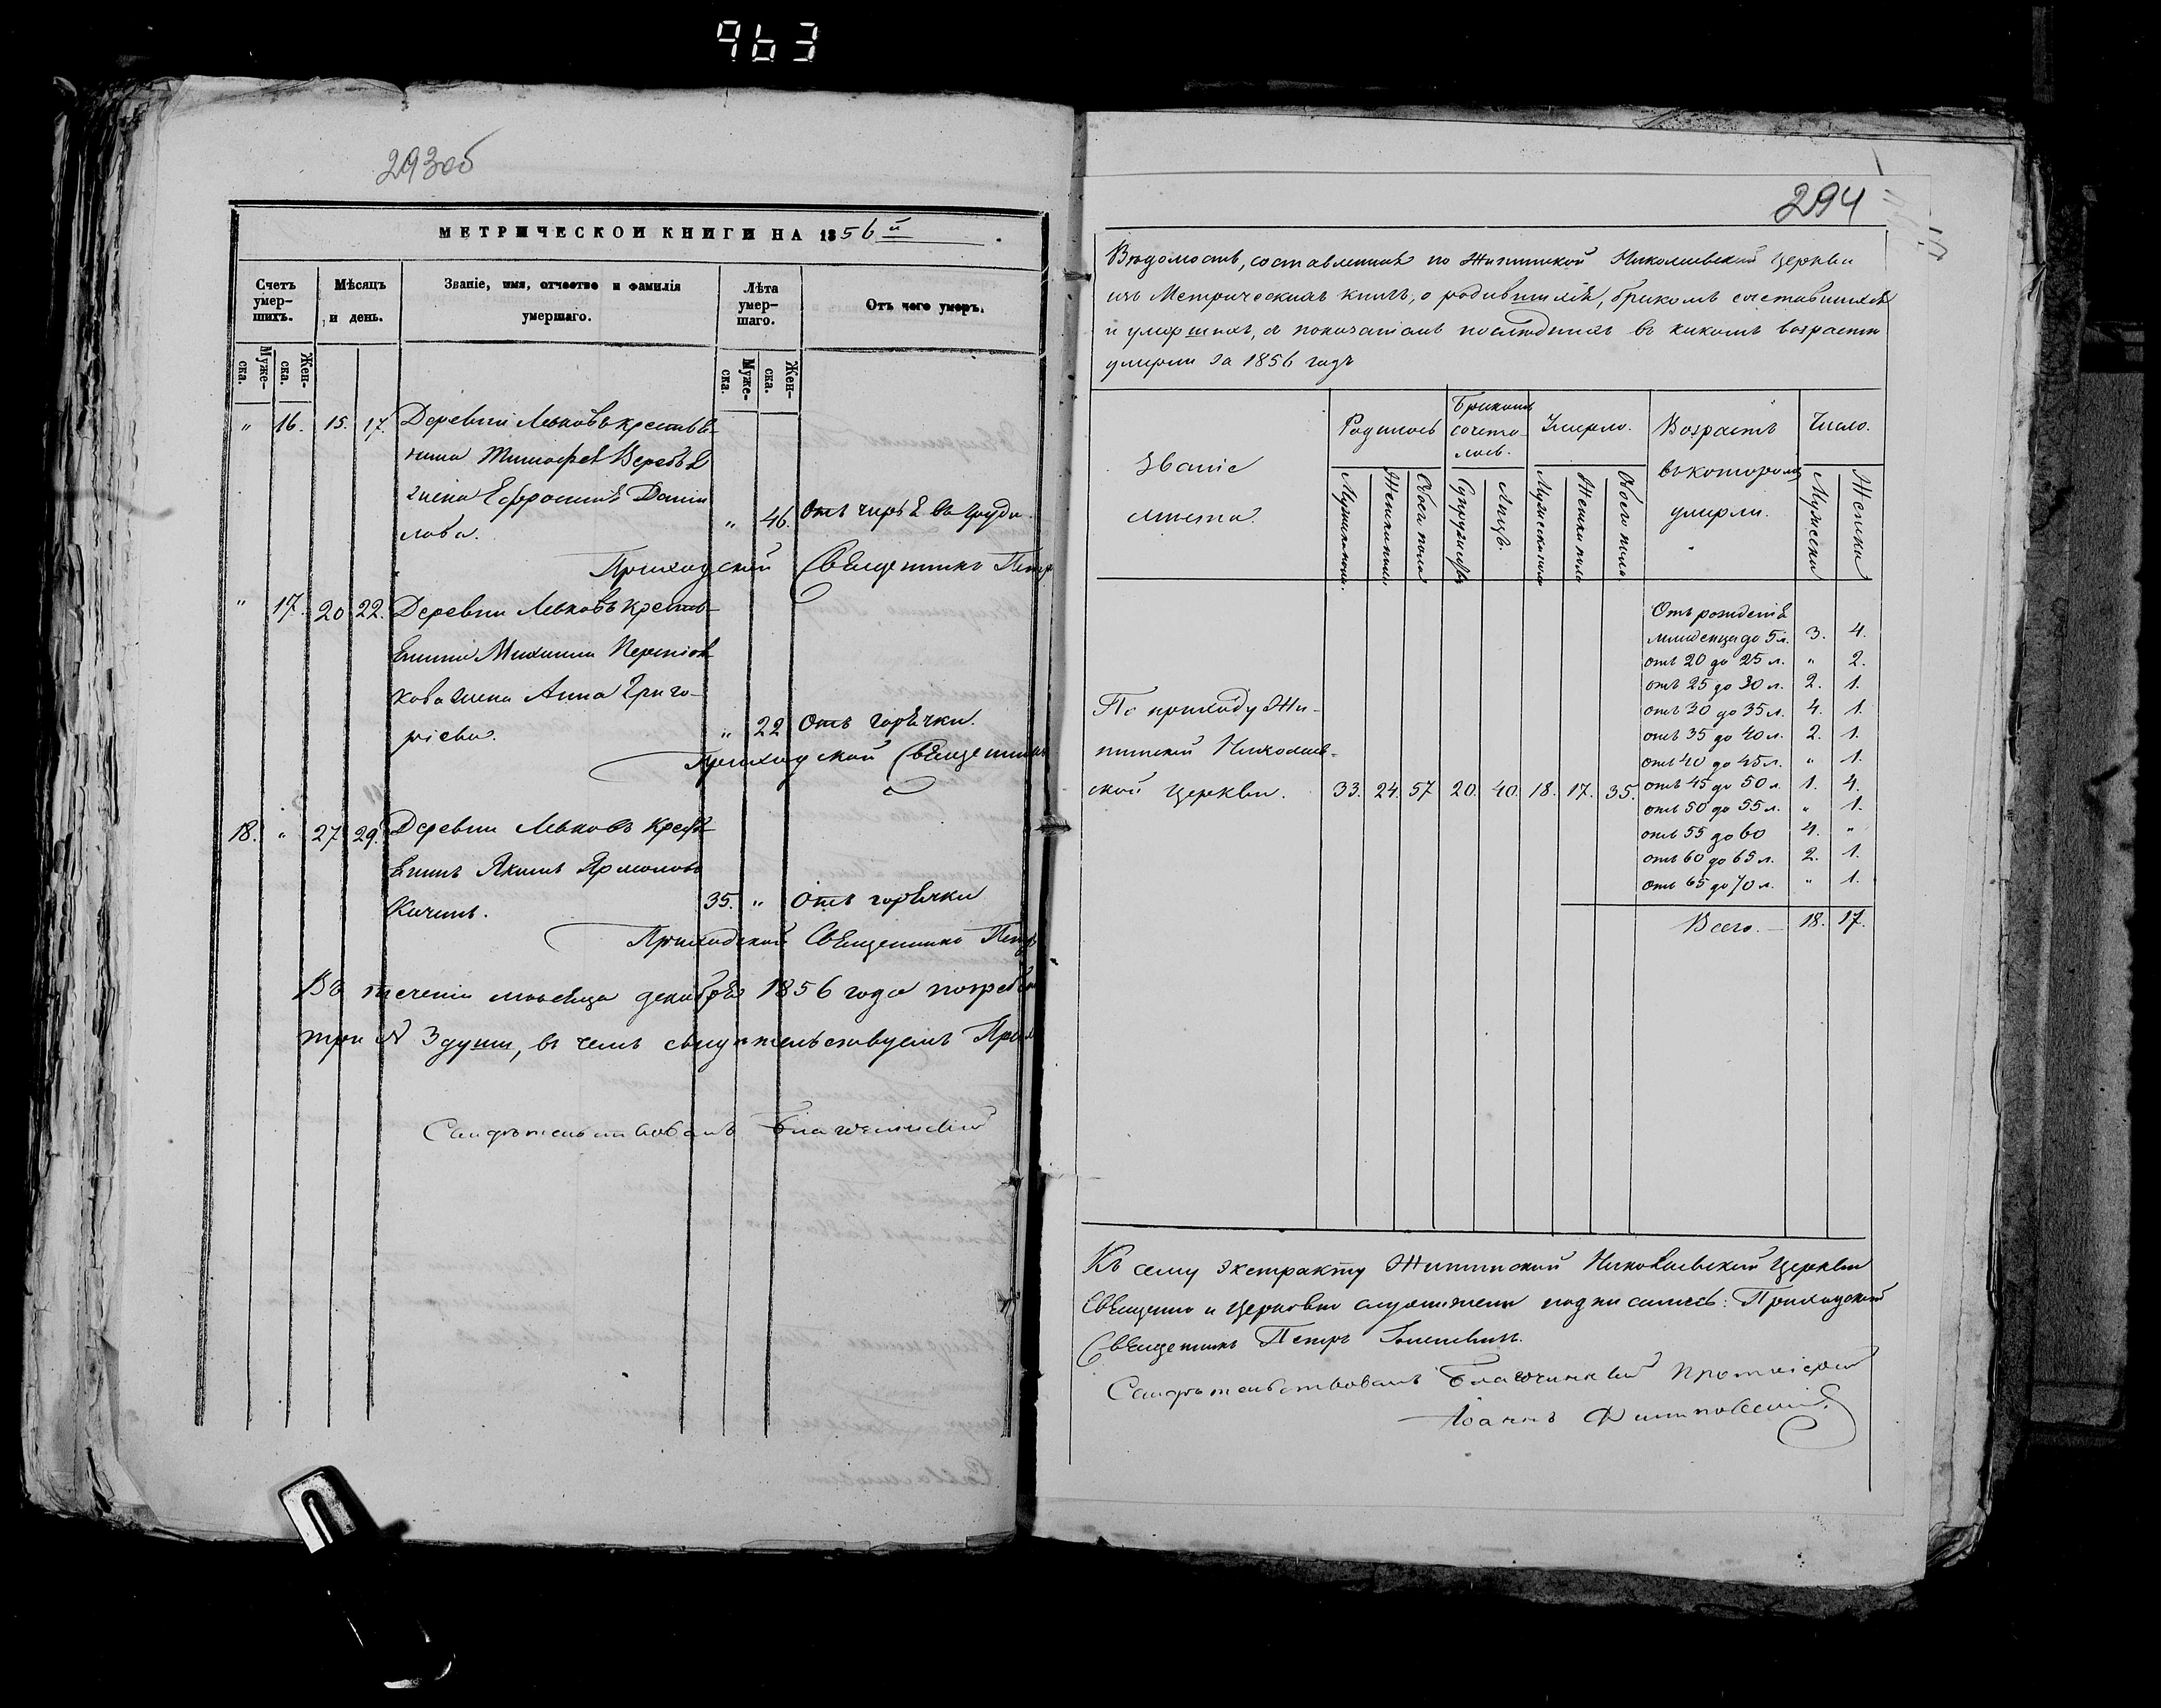 963
293об
МЕТРИЧЕСКОЙ КНИГИ НА 1856й
Счетъ умер-шихъ.
Мѣсяцъ и день.
Званіе, имя, отчество и фамилія умершаго.
Лѣта умер-шаго.
Отъ чего умеръ.
Муже-ска.
Жен-ска.
Муже-ска.
Жен-ска.
" 16. 15. 17. Деревни Леховъ крестья-
нина Тимофея Веребья
жена Ефросинія Дани
лова. " 46. Отъ чирья въ груди.
Приходскій Священникъ Петр
" 17. 20 22. Деревни Леховъ крестъ-
янина Михаила
кова жена Анна Григо-
ріева. " 22 Отъ горячки.
Приходской Священникъ
18. " 27 29. Деревни Леховъ крест
янинъ Якимъ Ярмоловъ
35. " Отъ горячки
Приходской Священникъ Петръ
Въ теченіи мѣсяца декабря 1856 года погребено
три № 3 души, въ чемъ свидѣтельствуемъ
Свидѣтельствовалъ Благочинный
294
Вѣдомость, составленная по Николаевской Церкви
изъ Метрическихъ книгъ, о родившихся, бракомъ сочетавшихся
и умершихъ, съ показаніемъ послѣднихъ въ какомъ возрастѣ
умерли за 1856 годъ
Званіе
мѣста.
Родилось
Бракомъ
сочета-
лось.
Умерло.
Возрастъ
въ которомъ
умерли.
Число.
Мужеска пола.
Женска пола
Обоего пола
Супружествъ
Лицъ.
Мужеска пола
Женска пола
Обоего пола
Мужеска
Женска
Отъ рожденія
младенца до 5 л. 3. 4.
отъ 20 до 25 л. " 2.
отъ 25 до 30 л. 2. 1.
отъ 30 до 35 л. 4. 1.
отъ 35 до 40 л. 2. 1.
отъ 40 до 45 л. " 1.
отъ 45 до 50 л. 1. 4.
отъ 50 до 55 л. " 1.
отъ 55 до 60 4. "
отъ 60 до 65 л. 2. 1.
отъ 65 до 70 л. " 1.
По приходу
Николаев-
ской Церкви. 33. 24. 57 20. 40. 18. 17. 35.
Всего. 18. 17.
Къ сему экстракту Николаевской Церкви
Священно и Церковно служители подписались: Приходской
Священникъ Петръ
Свидѣтельствовалъ Благочинный Протоіерей
Іоаннъ